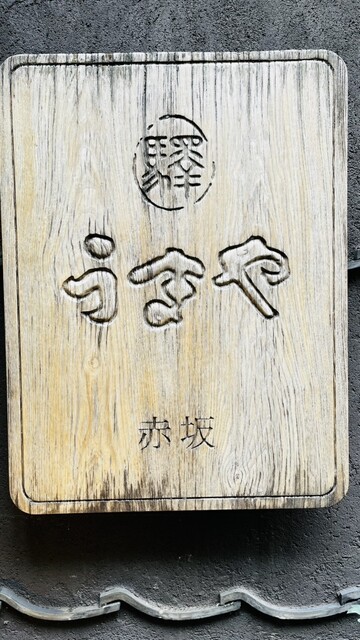 驛
うまや
赤坂